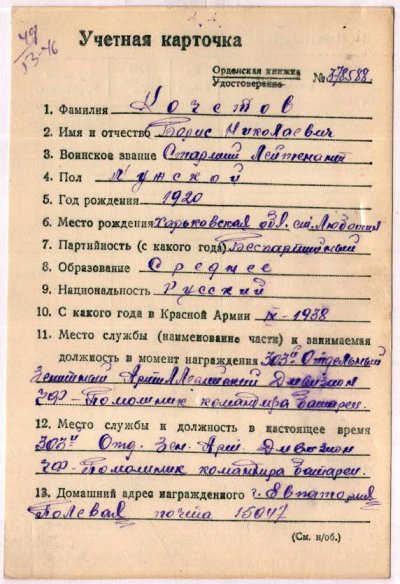 49
ГЗ-46
Учетная карточка
Орденская книжка
Удостоверение № 378588
1. Фамилия Кочетов
2. Имя и отчество Борис Николаевич
3. Воинское звание Старший Лейтенант
4. Пол Мужской
5. Год рождения 1920
6. Место рождения Харьковская обл. ст. Люботин
7. Партийность (с какого года) Беспартийный
8. Образование Среднее
9. Национальность Русский
10. С какого года в Красной Армии IX-1938
11. Место службы (наименование части) и занимаемая
должность в момент награждения 303й Отдельный
Зенитный Артиллерийский Дивизион
ЧФ - Помощник командира батареи.
12. Место службы и должность в настоящее время
303й Отд. Зен. Арт Дивизион
ЧФ - Помощник командира батареи.
13. Домашний адрес награжденного г. Евпатория
Полевая почта 15047
(См. н/об.)